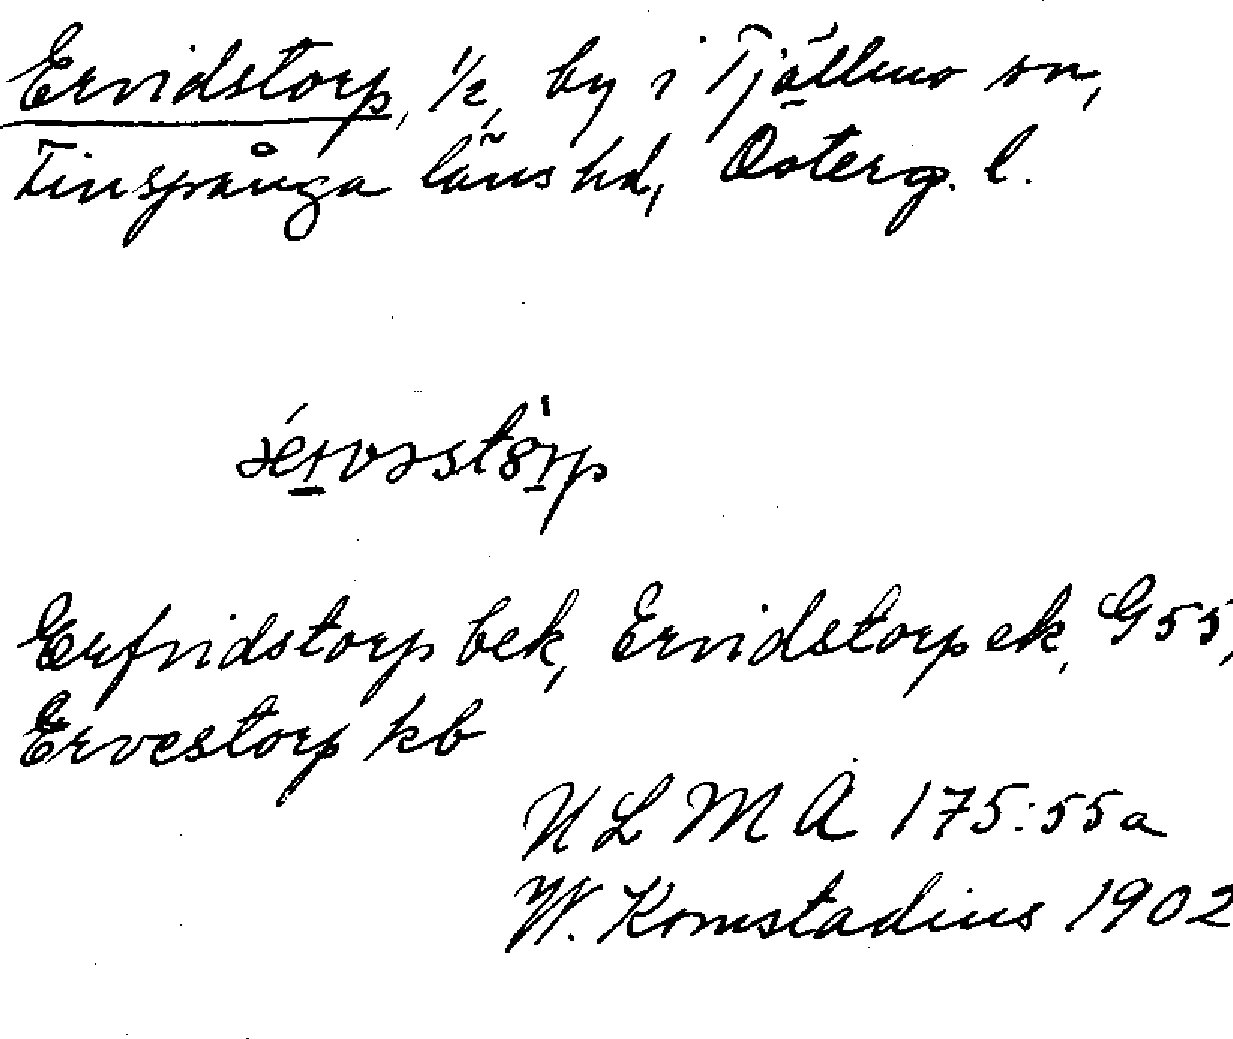 Ervidstorp, 1/2, by i Tjällmo sn,
Finspånga läns hd, Österg. l.
Erfvidstorp bek, Ervidstorp ek, G55,
Ervestorp kb
ULMA 175:55a
W. Komstadius 1902